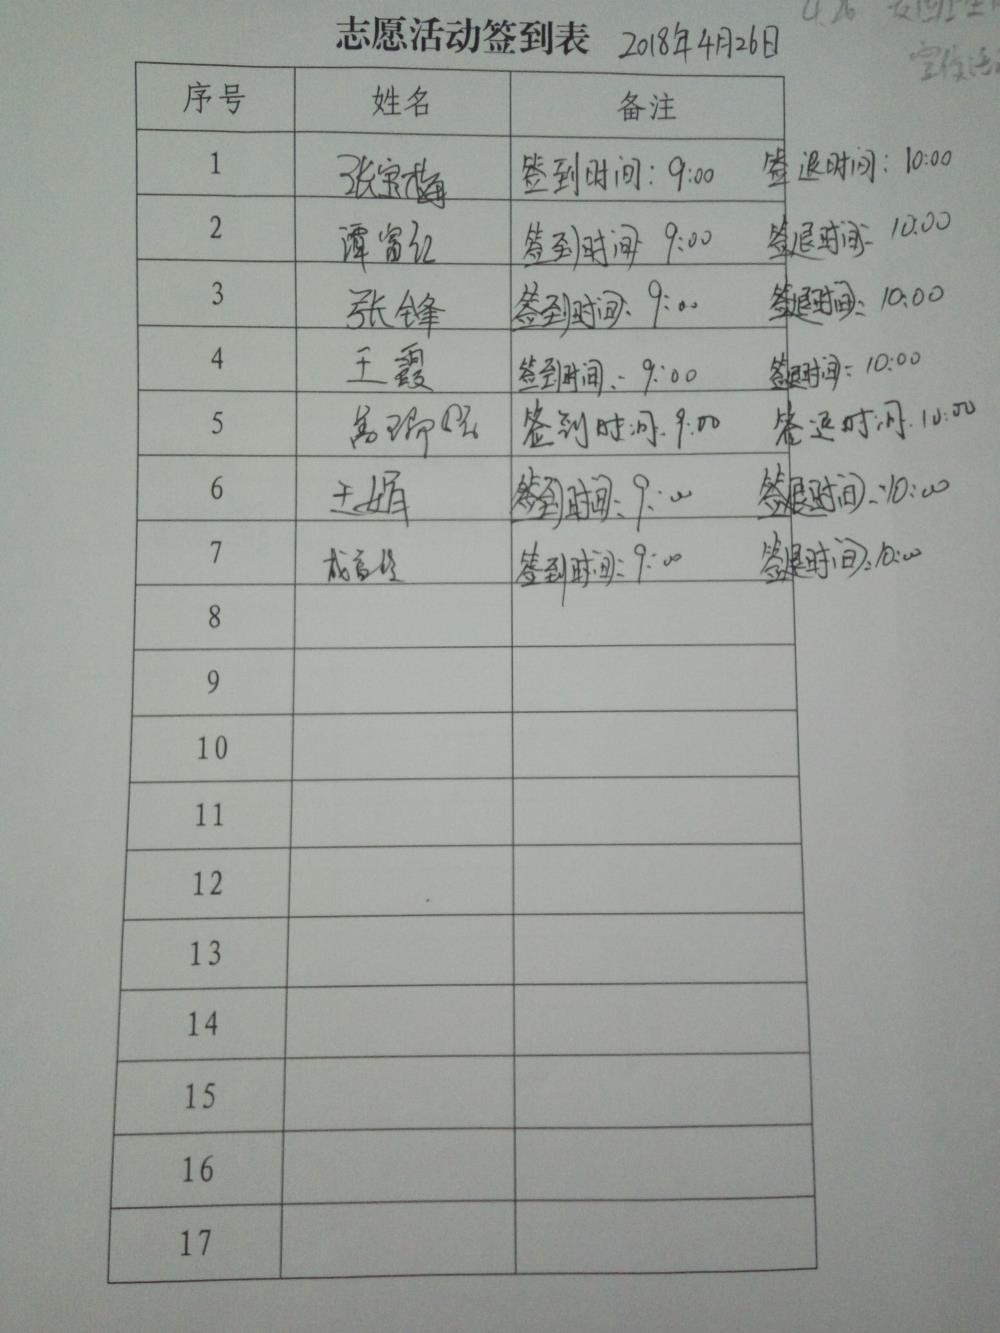 志愿活动签到表 2018年4月26日
4.26
宣传活
序号 姓名 备注
1 张宝梅 签到时间：9:00 签退时间：10:00
2 谭富红 签到时间 9:00 签退时间 10:00
3 张锋 签到时间：9:00 签退时间：10:00
4 王霞 签到时间：9:00 签退时间：10:00
5 签到时间：9:00 签退时间：10:00
6 王娟 签到时间：9:00 签退时间：10:00
7 签到时间：9:00 签退时间：10:00
8
9
10
11
12
13
14
15
16
17